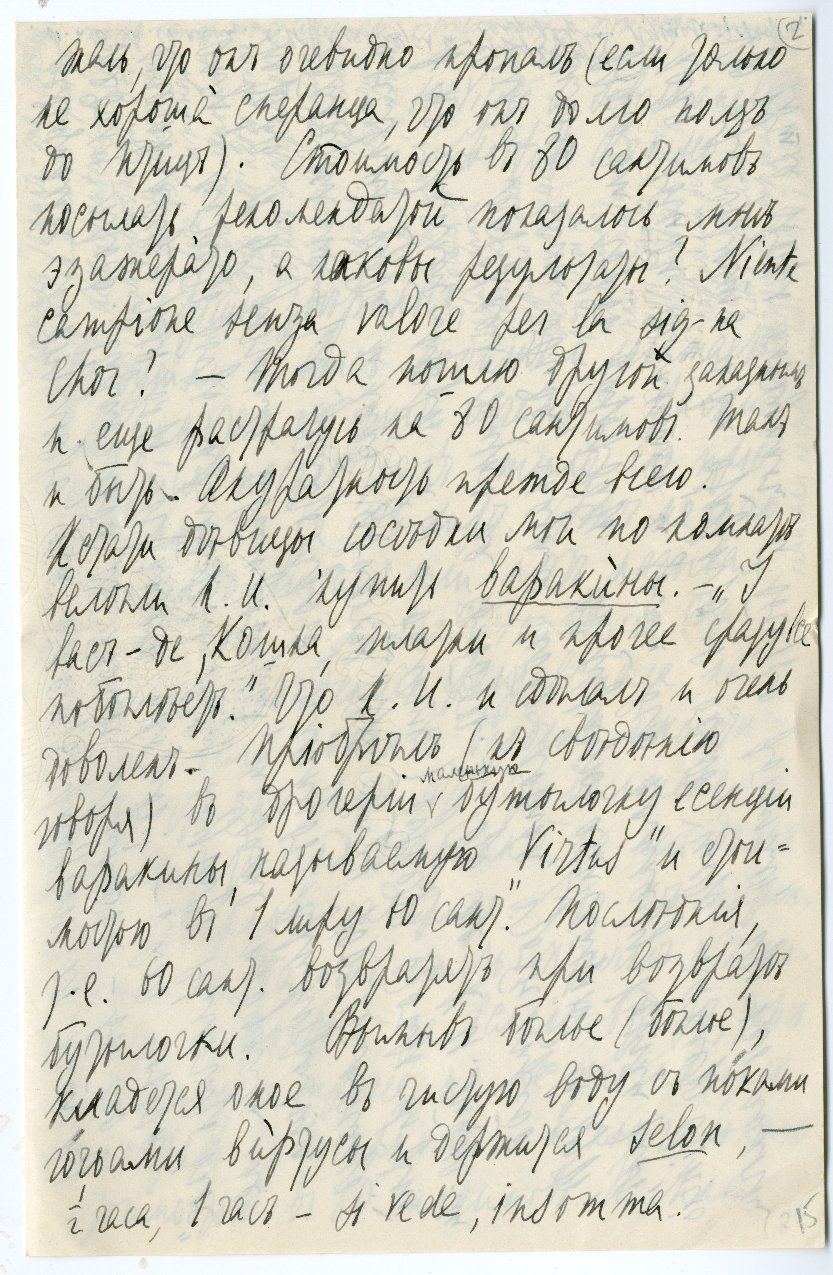 2
Жаль, что онъ очевидно пропалъ (если только
не хороша сперанца, что онъ долго ползъ
до          ). Стоимость въ 80 сантимовъ
посылать рекомендатой показалось мнѣ
эзажерато, а каковы результаты? Niente
campione senza valore per la sig-na
Chor? — Тогда пошлю другой
и еще растрачусь на 80 сантимовъ. Такъ
и быть. Акуратность прежде всего.
Кстати дѣвицы сосѣдки мои по комнатѣ
велѣли К. И. купить варакины. — „У
васъ-де, Кошка, платки и прочее сразу все
побѣлѣетъ." Что К. И. и сдѣлалъ и очень
доволенъ. Пріобрѣлъ (къ свѣдѣнію
говоря) въ дрогеріи маленькую бутылочку есенціи
варакины, называемую „Virtus" и стои=
мостью въ „1 лиру 60 сант." Послѣднія,
т.е. 60 сант. возвратятъ при возвратѣ
бутылочки. Вымывъ бѣлье (бѣлье),
кладется оное въ чистую воду съ
виртусы и держится selon, —
½ часа, 1 часъ — si vede, insomma.
215